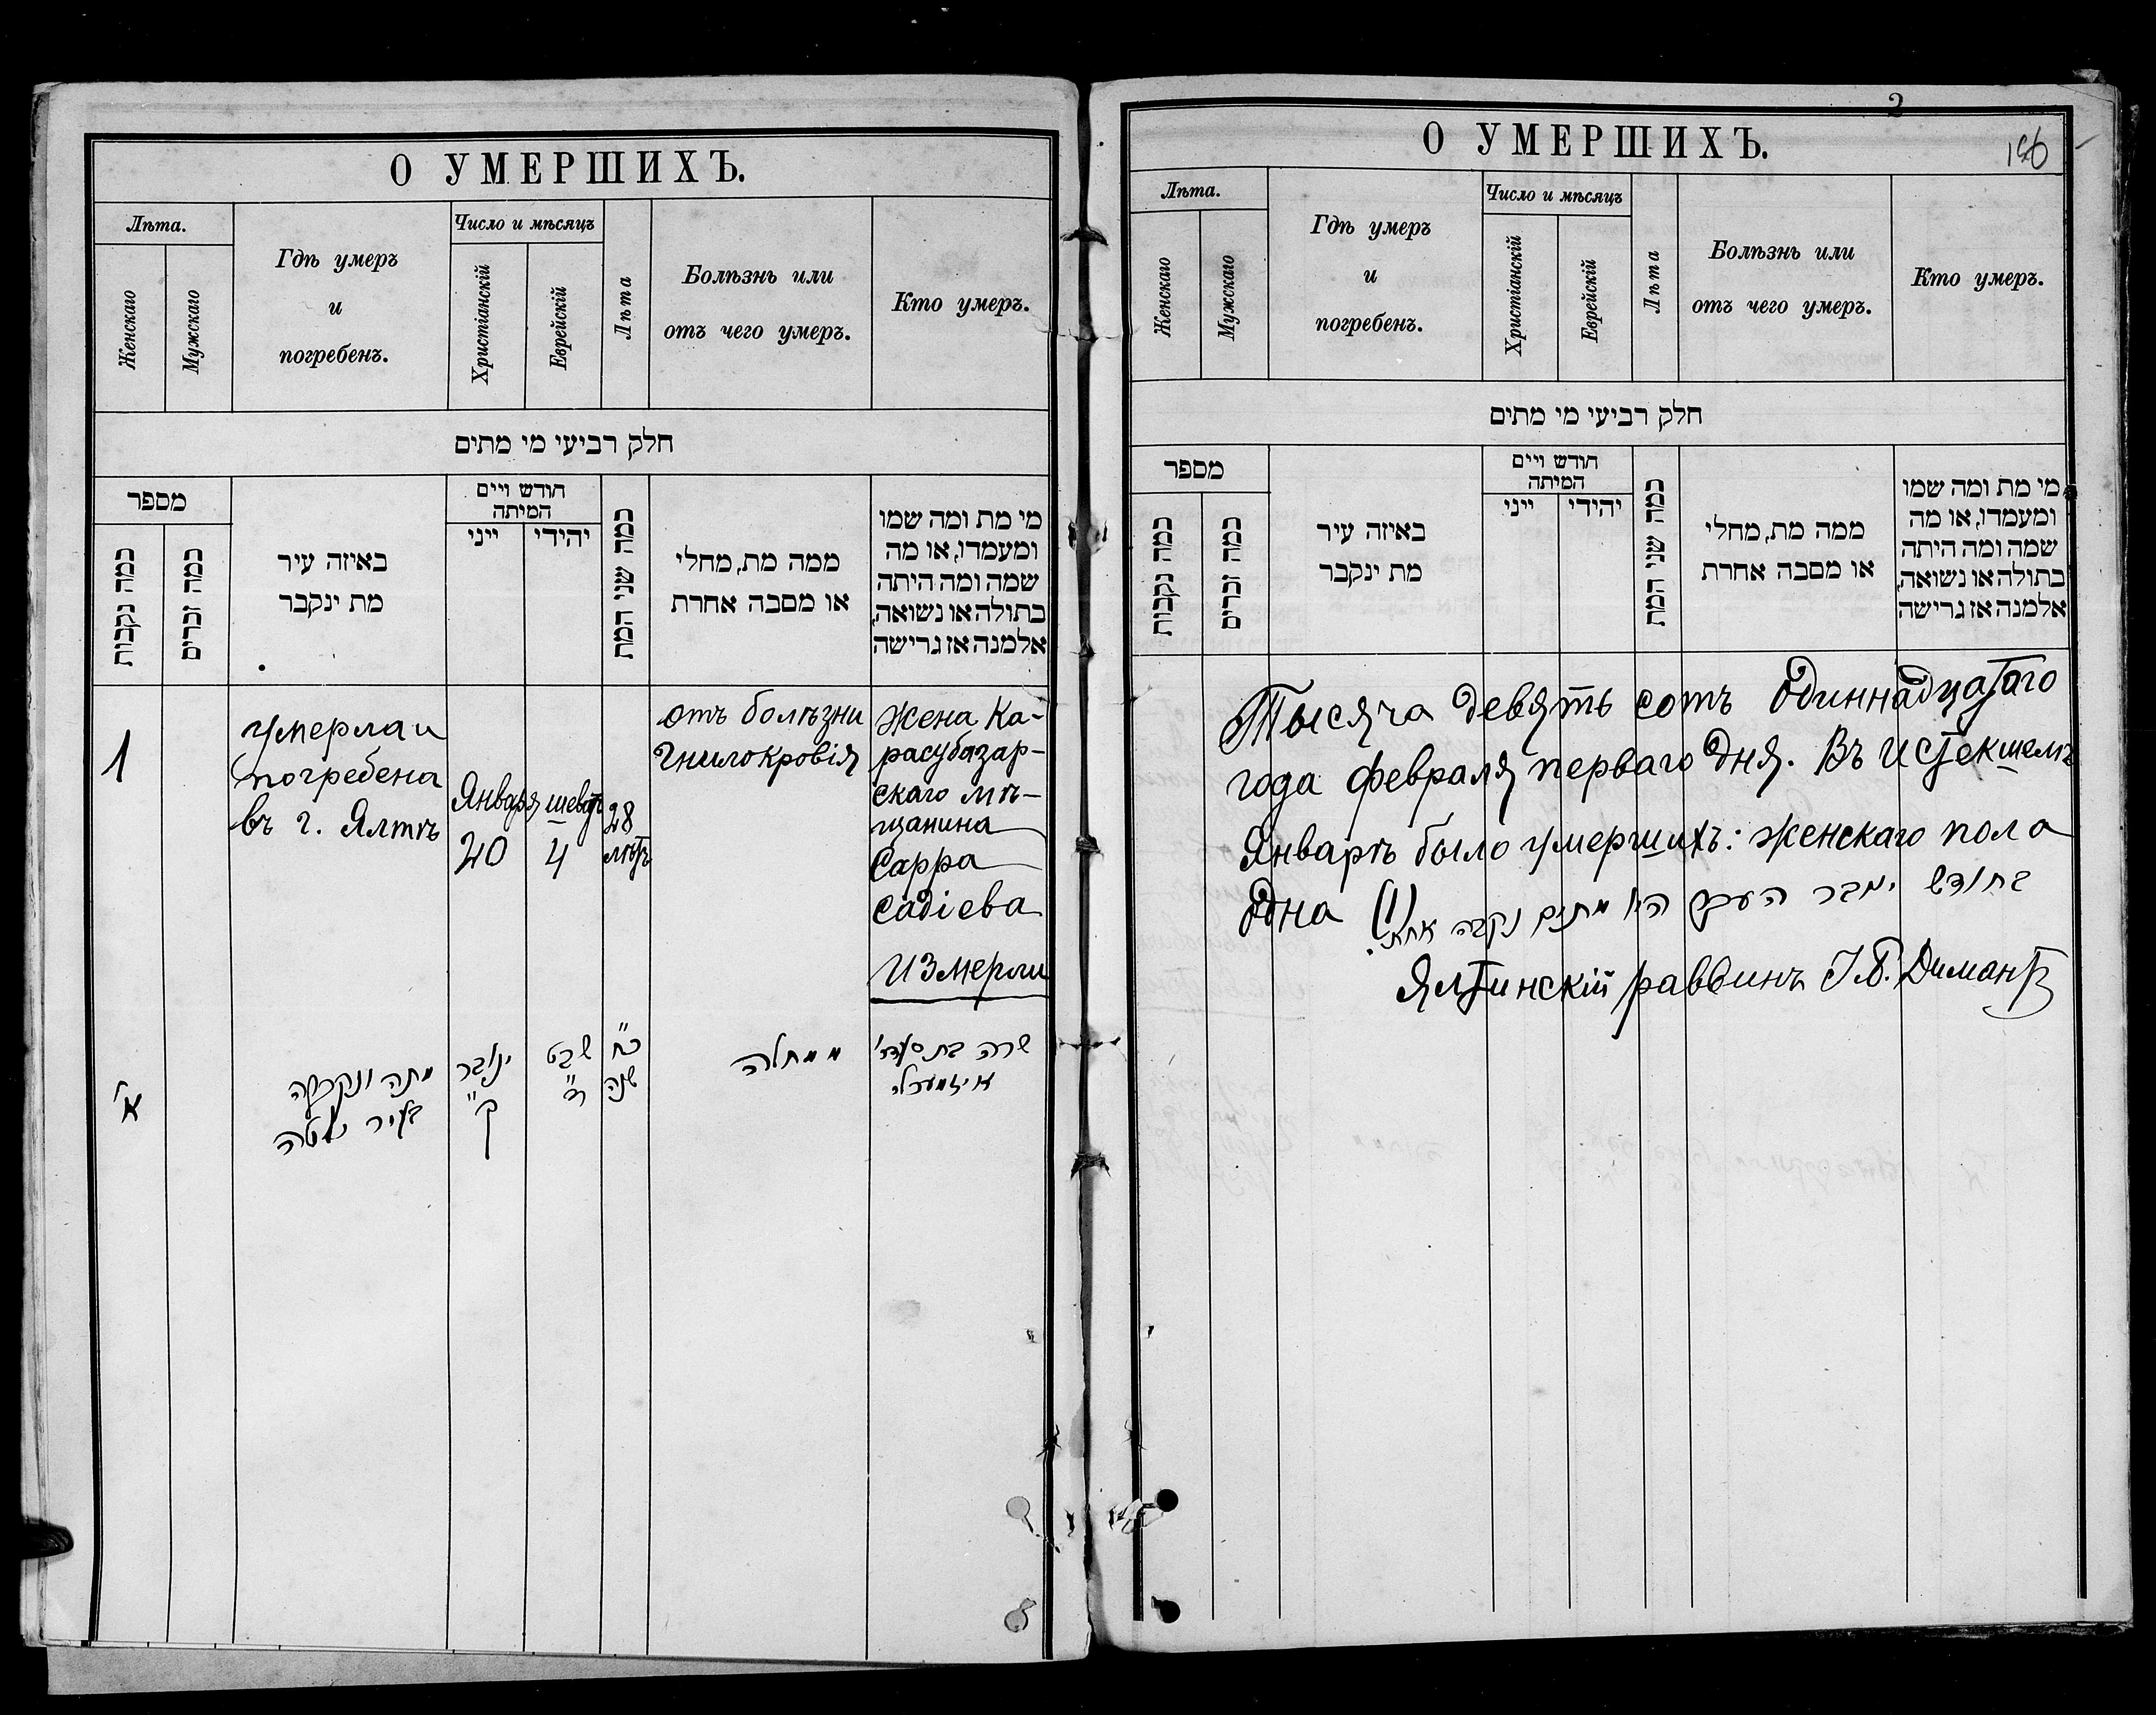 О УМЕРШИХЪ.
Лѣта.
Женскаго
Мужскаго
Гдѣ умеръ
и
погребенъ.
Число и мѣсяцъ
Христіанскій
Еврейскій
Лѣта
Болѣзнь или
отъ чего умеръ.
Кто умеръ.
חלק רביעי מי מתים
מספר
כמה נקבות
כמה זכרים
באיזה עיר
מת ינקבר
חודש ויים
המיתה
ייני
יהידי
כמה שני המת
ממה מת, מחלי
או מסבה אחרת
מי מת ומה שמו
ומעמדו, או מה
שמה ומה היתה
בתולה או נשואה,
אלמנה אז גרישה
1
умерла и
погребена
въ г. Ялтѣ
Января
20
шеватъ
4
28
лѣтъ
отъ болѣзни
гнилокровія
Жена Ка-
расубазар-
скаго мѣ-
щанина
Сарра
Садіева
Измерли
א'
מתה ונקברה
בעיר יאלטה
ינובר
ק"
שבט
כח"
שנה
ממחלה
שרה בת סעדי'
איזמערלי
2
О УМЕРШИХЪ.
Лѣта.
Женскаго
Мужскаго
Гдѣ умеръ
и
погребенъ.
Число и мѣсяцъ
Христіанскій
Еврейскій
Лѣта
Болѣзнь или
отъ чего умеръ.
Кто умеръ.
חלק רביעי מי מתים
מספר
כמה נקבות
כמה זכרים
באיזה עיר
מת ינקבר
חודש ויים
המיתה
ייני
יהידי
כמה שני המת
ממה מת, מחלי
או מסבה אחרת
מי מת ומה שמו
ומעמדו, או מה
שמה ומה היתה
בתולה או נשואה,
אלמנה אז גרישה
Тысяча девять сотъ одиннадцатаго
года февраля перваго дня. Въ истекшемъ
Январѣ было умершихъ: женскаго пола
одна (1)
בחודש ינבר העבר היו מתים נקבה אחת.
Ялтинскій раввинъ І. Б. Димантъ